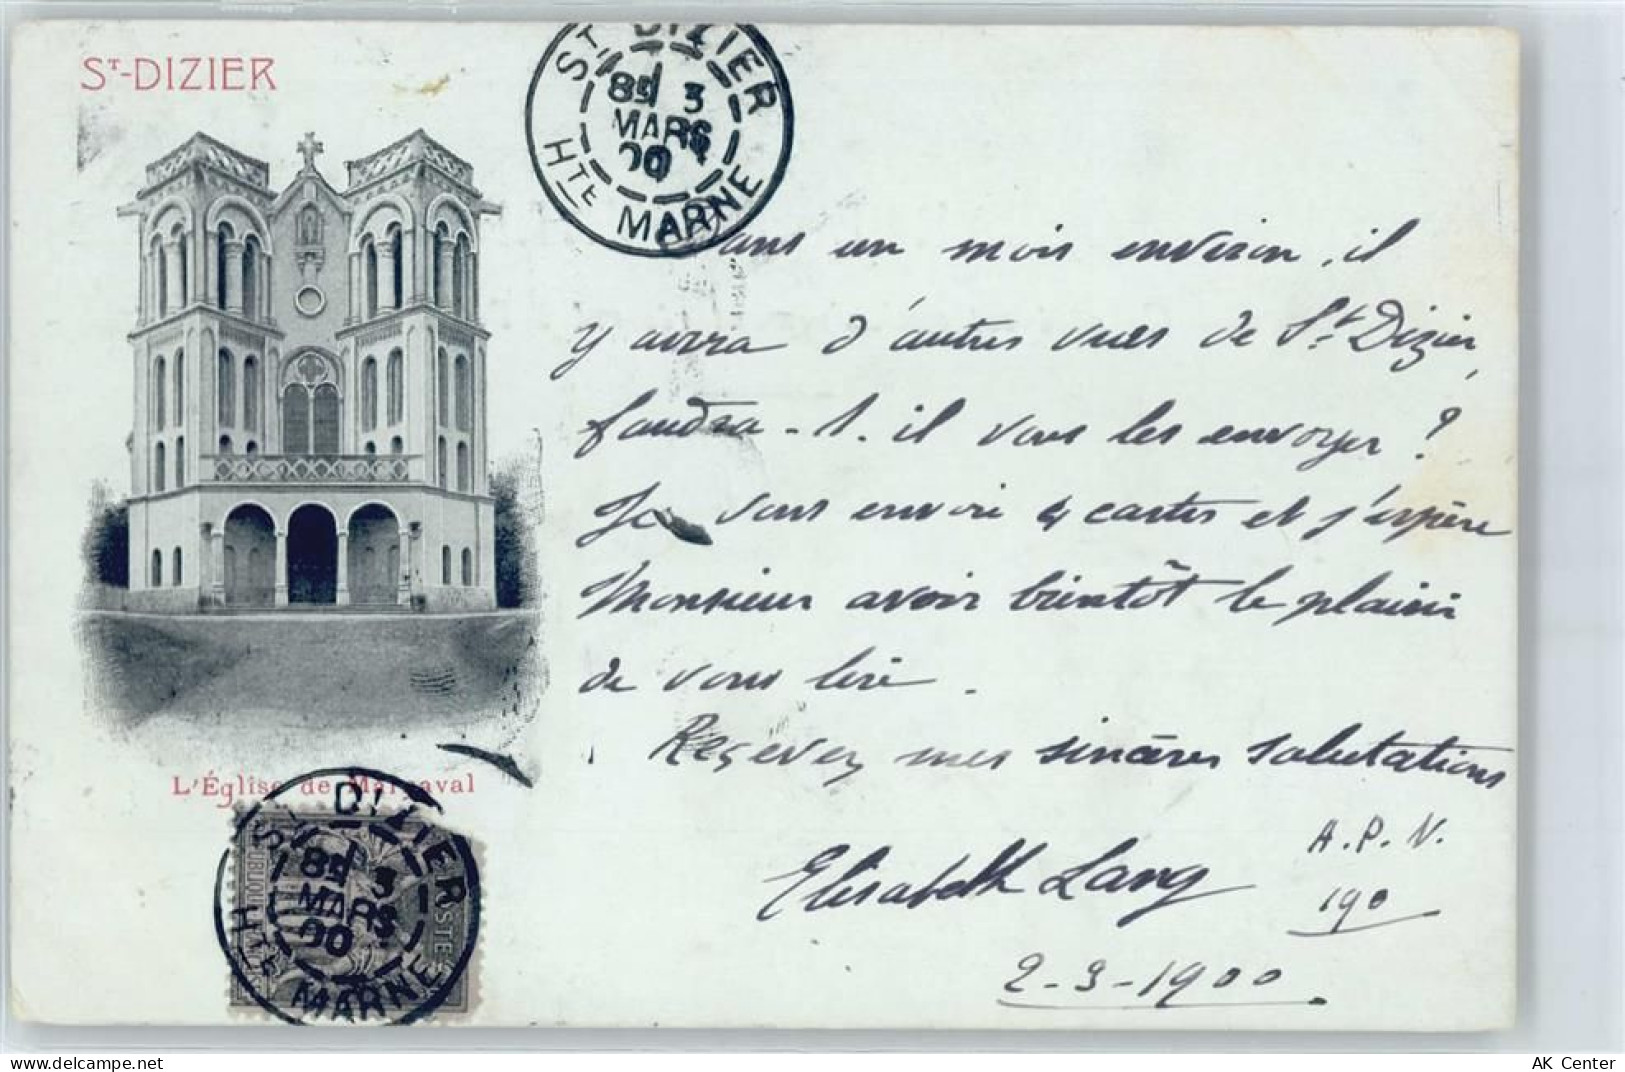 ST-DIZIER
ST DIZIER
8E 3
MARS
00
HTE MARNE
Dans un mois environ, il
y aura d'autres vues de St. Dizier,
faudra-t-il vous les envoyer ?
Je vous envoie 4 cartes et j'espère
Monsieur avoir bientôt le plaisir
de vous lire.
Recevez mes sincères salutations
L'Église de Marnaval
ST DIZIER
8E 3
MARS
00
HTE MARNE
POSTE
Elisabeth Lang
A.P.V.
190
2-3-1900
AK Center